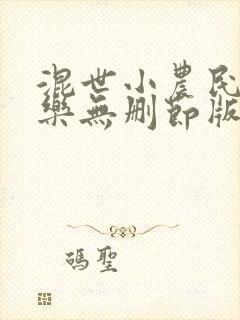 混世小農民
樂無刪節版
瑪聖